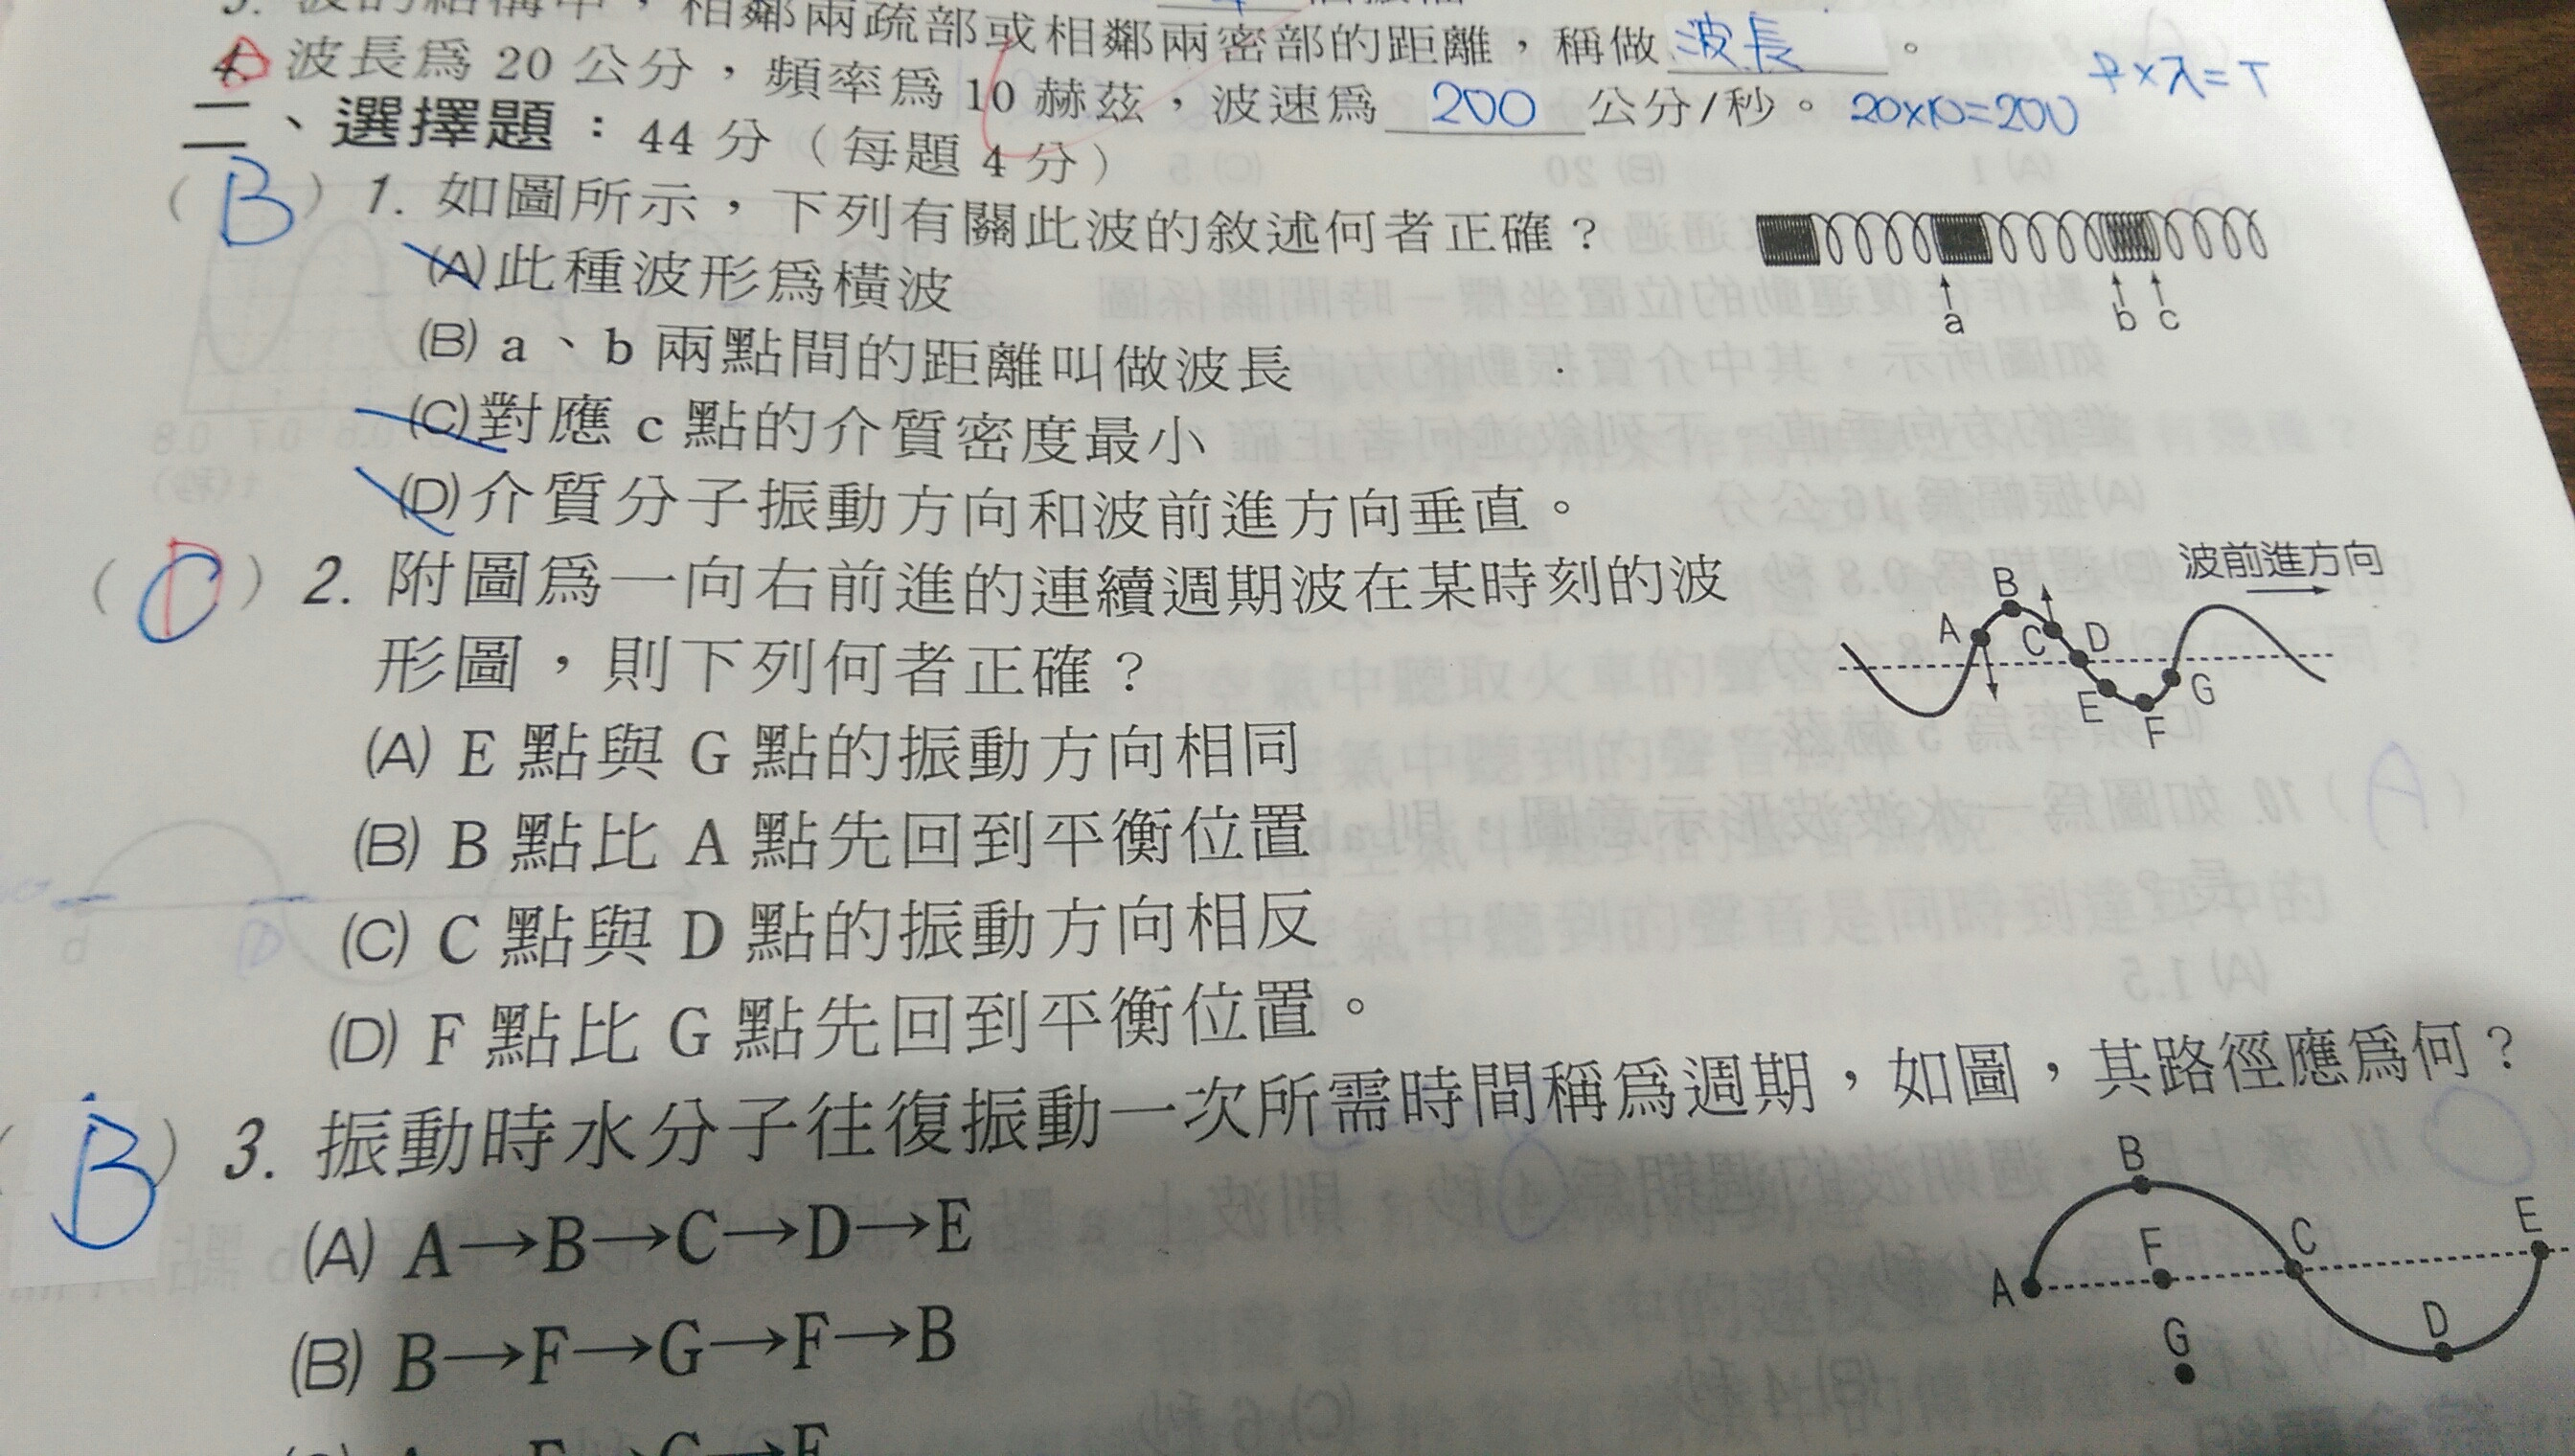 相鄰兩疏部或相鄰兩密部的距離，稱做 波長 。
4. 波長為 20 公分，頻率為 10 赫茲，波速為 200 公分/秒。 20x10=200
二、選擇題：44 分（每題 4 分）
（ B ）1. 如圖所示，下列有關此波的敘述何者正確？
(A)此種波形為橫波
(B) a、b 兩點間的距離叫做波長
(C)對應 c 點的介質密度最小
(D)介質分子振動方向和波前進方向垂直。
a b c
（ ）2. 附圖為一向右前進的連續週期波在某時刻的波
形圖，則下列何者正確？
(A) E 點與 G 點的振動方向相同
(B) B 點比 A 點先回到平衡位置
(C) C 點與 D 點的振動方向相反
(D) F 點比 G 點先回到平衡位置。
波前進方向
A B C D E F G
（ B ）3. 振動時水分子往復振動一次所需時間稱為週期，如圖，其路徑應為何？
(A) A→B→C→D→E
(B) B→F→G→F→B
A B F C E G D